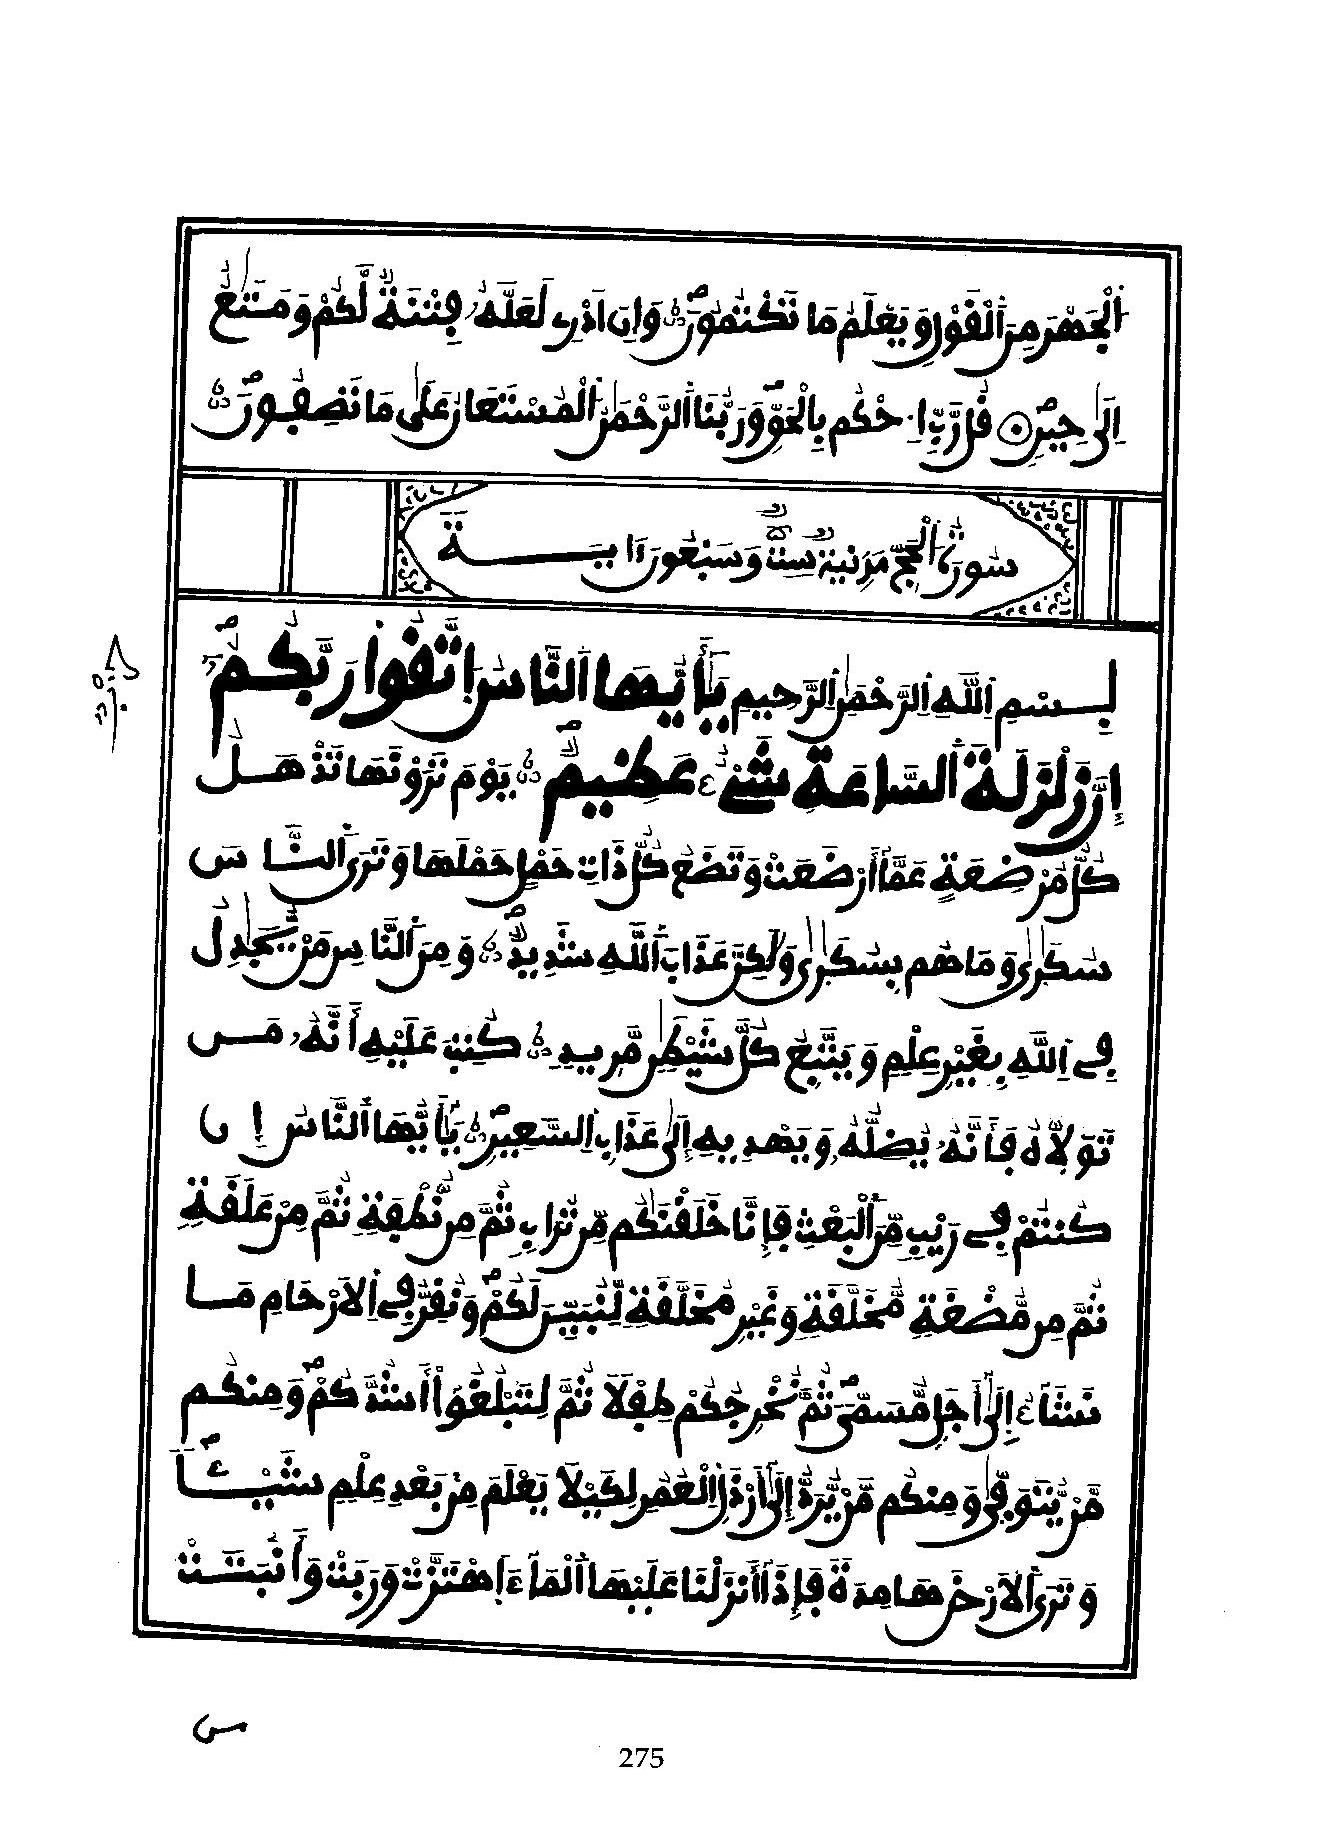 اَ۬لْجَهْرَ مِنَ اَ۬لْقَوْلِ وَيَعْلَمُ مَا تَكْتُمُونَۖ وَإِنَ اَدْرِے لَعَلَّهُۥ فِتْنَةٞ لَّكُمْ وَمَتَٰعٌ
اِلَىٰ حِينٖۖ قُل رَّبِّ اِ۟حْكُم بِالْحَقِّۖ وَرَبُّنَا اَ۬لرَّحْمَٰنُ اُ۬لْمُسْتَعَانُ عَلَىٰ مَا تَصِفُونَۖ
سورة الحج مدنية ست وسبعون ءاية
بِسْمِ اِ۬للَّهِ اِ۬لرَّحْمَٰنِ اِ۬لرَّحِيمِ يَٰأَيُّهَا اَ۬لنَّاسُ اُ۪تَّقُوا رَبَّكُمُۥٓۖ
إِنَّ زَلْزَلَةَ اَ۬لسَّاعَةِ شَےْءٌ عَظِيمٞۖ يَوْمَ تَرَوْنَهَا تَذْهَلُ
كُلُّ مُرْضِعَةٍ عَمَّا أَرْضَعَتْ وَتَضَعُ كُلُّ ذَاتِ حَمْلٍ حَمْلَهَا وَتَرَى اَ۬لنَّاسَ
سُكَٰرَىٰ وَمَا هُم بِسُكَٰرَىٰ وَلَٰكِنَّ عَذَابَ اَ۬للَّهِ شَدِيدٞۖ وَمِنَ اَ۬لنَّاسِ مَنْ يُّجَٰدِلُ
فِے اِ۬للَّهِ بِغَيْرِ عِلْمٖ وَيَتَّبِعُ كُلَّ شَيْطَٰنٖ مَّرِيدٖ كُتِبَ عَلَيْهِ أَنَّهُۥ مَن
تَوَلَّاهُ فَأَنَّهُۥ يُضِلُّهُۥ وَيَهْدِيهِ إِلَىٰ عَذَابِ اِ۬لسَّعِيرِۖ يَٰأَيُّهَا اَ۬لنَّاسُ إِن
كُنتُمْ فِے رَيْبٖ مِّنَ اَ۬لْبَعْثِ فَإِنَّا خَلَقْنَٰكُم مِّن تُرَابٖ ثُمَّ مِن نُّطْفَةٖ ثُمَّ مِنْ عَلَقَةٖ
ثُمَّ مِن مُّضْغَةٖ مُّخَلَّقَةٖ وَغَيْرِ مُخَلَّقَةٖ لِّنُبَيِّنَ لَكُمْۖ وَنُقِرُّ فِے اِ۬لَارْحَامِ مَا
نَشَآءُ إِلَىٰ أَجَلٖ مُّسَمّىٗۖ ثُمَّ نُخْرِجُكُمْ طِفْلٗا ثُمَّ لِتَبْلُغُوا أَشُدَّكُمْۖ وَمِنكُم
مَّنْ يُّتَوَفَّىٰ وَمِنكُم مَّنْ يُّرَدُّ إِلَىٰ أَرْذَلِ اِ۬لْعُمُرِ لِكَيْلَا يَعْلَمَ مِنۢ بَعْدِ عِلْمٖ شَيْـٔاٗۖ
وَتَرَى اَ۬لَارْضَ هَامِدَةٗ فَإِذَا أَنزَلْنَا عَلَيْهَا اَ۬لْمَآءَ اَ۪هْتَزَّتْ وَرَبَتْ وَأَنۢبَتَتْ
275